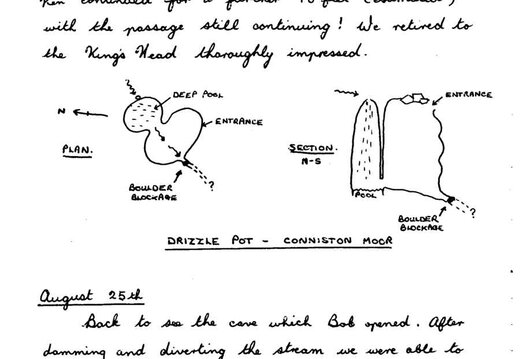 Ken continued for a further 10 feet (estimated)
with the passage still continuing! We retired to
the King's Head thoroughly impressed.
N
DEEP POOL
ENTRANCE
PLAN.
BOULDER
BLOCKAGE
?
ENTRANCE
SECTION.
N-S
POOL
BOULDER
BLOCKAGE
?
DRIZZLE POT - CONNISTON MOOR
August 25th
Back to see the cave which Bob opened. After
damming and diverting the stream we were able to